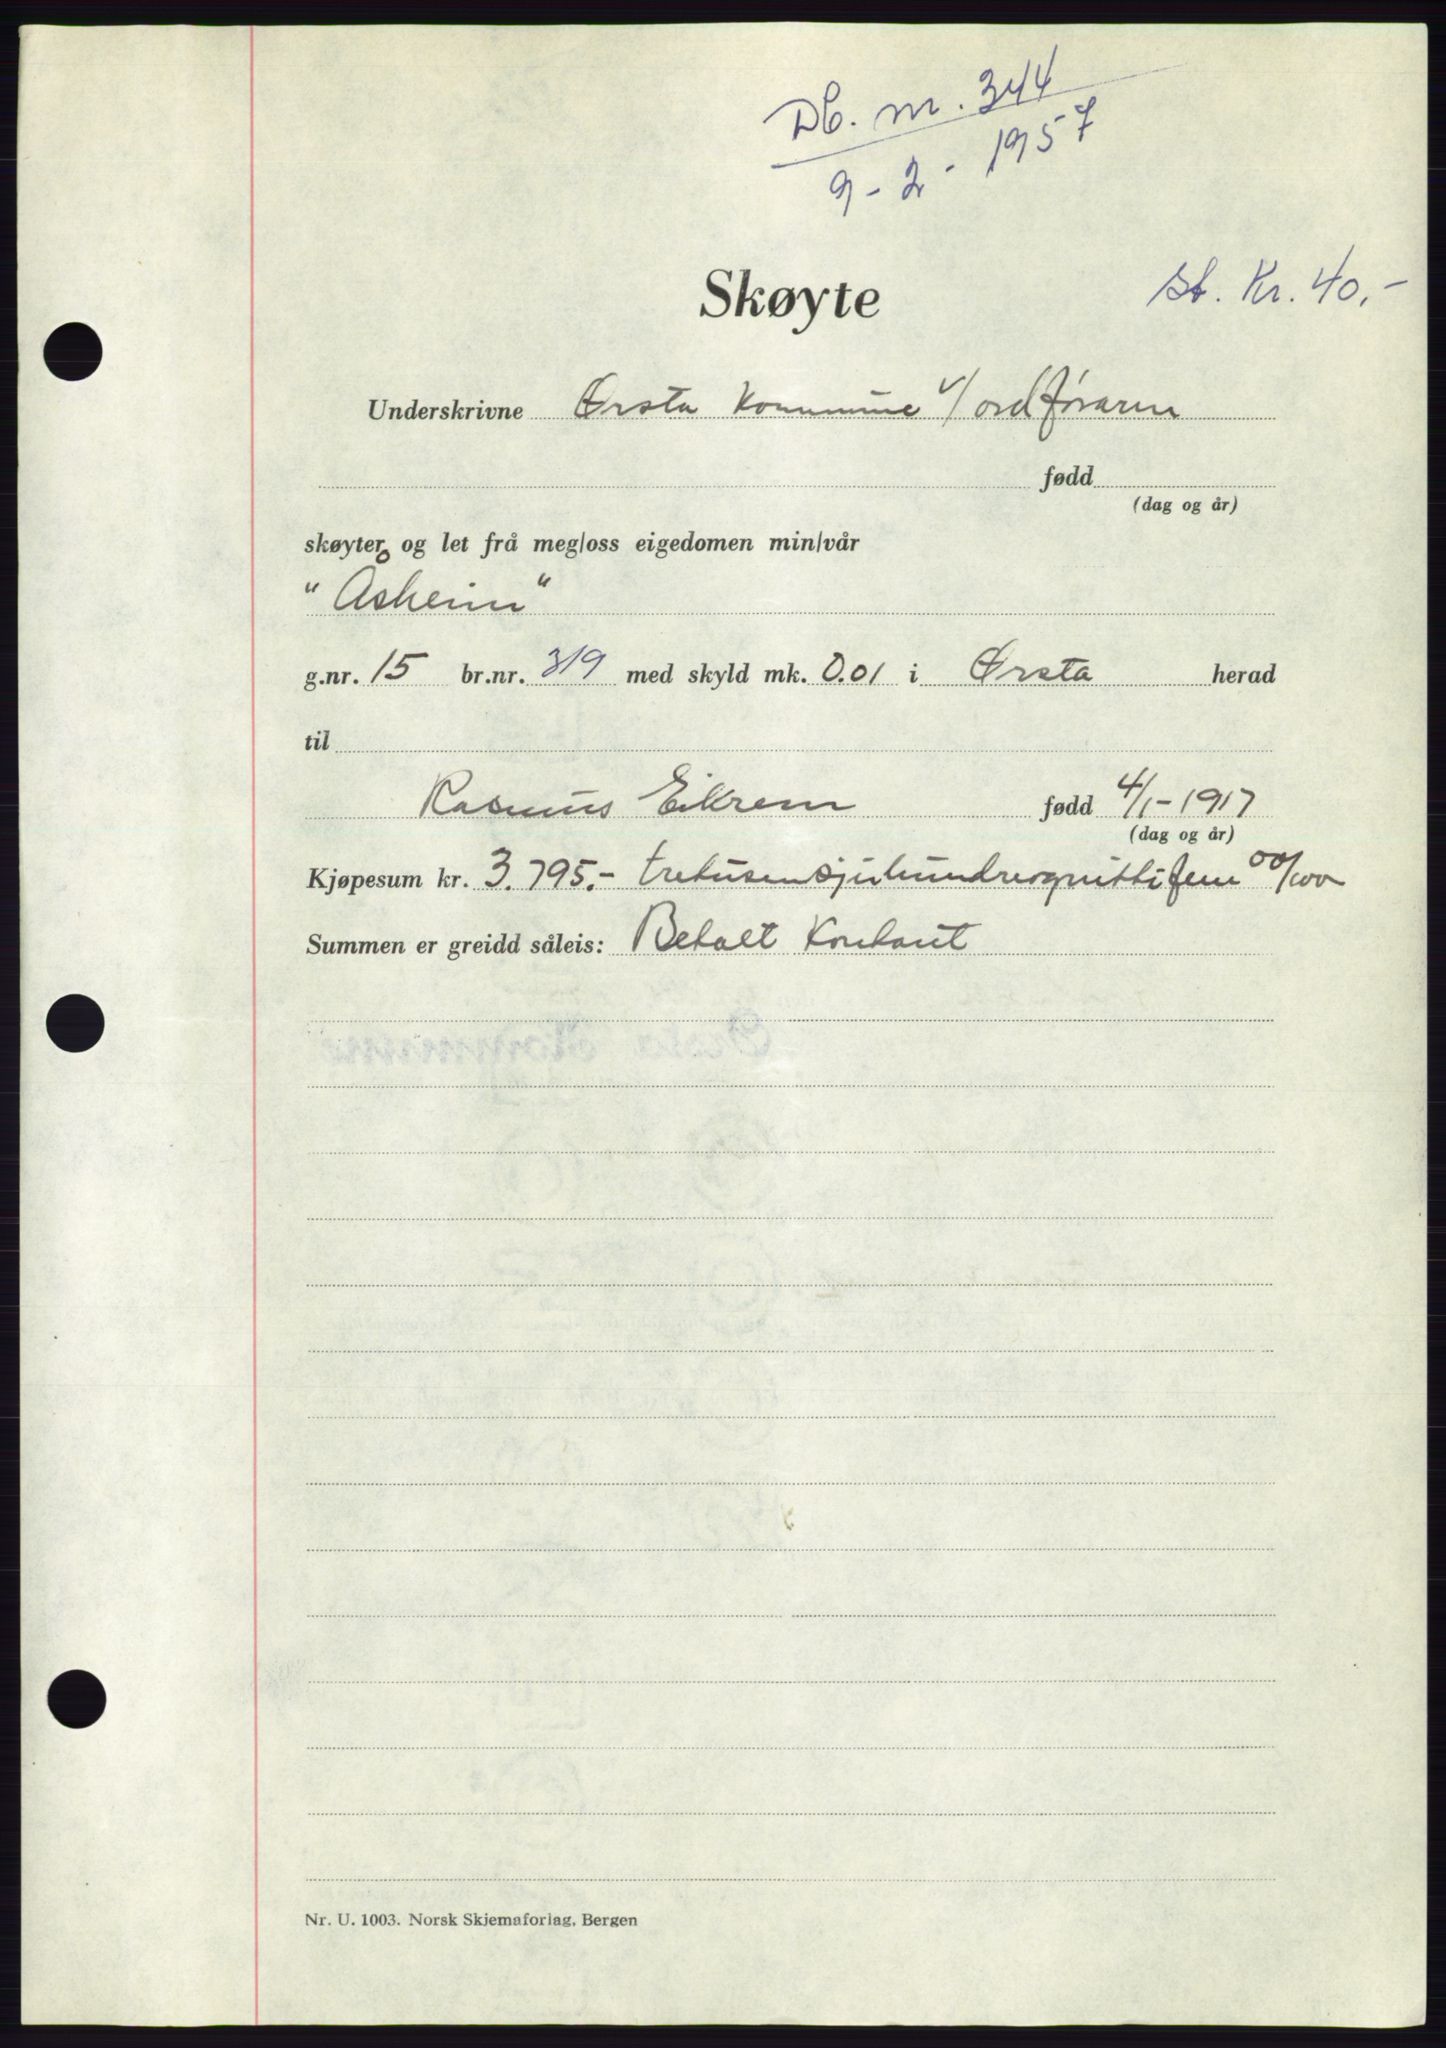 Db. nr. 344
9-2-1957
Skøyte
st. Kr. 40,-
Underskrivne Ørsta Kommune v/ordføraren
fødd
(dag og år)
skøyter og let frå meg/oss eigedomen min/vår
"Åsheim"
g.nr. 15 br.nr. 319 med skyld mk. 0.01 i Ørsta herad
til
Rasmus Eikrem fødd 4/1-1917
(dag og år)
Kjøpesum kr. 3.795.- tretusensjuhundreognittifem 00/100
Summen er greidd såleis: Betalt Kontant
Nr. U. 1003. Norsk Skjemaforlag, Bergen